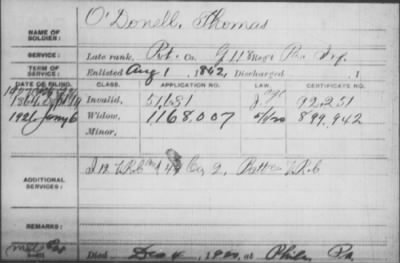 O'Donell, Thomas
NAME OF SOLDIER:
SERVICE: Late rank, Pvt. Co. G 118 Reg't Pa. Inf.
TERM OF SERVICE: Enlisted Aug 1, 1862, Discharged , 1
DATE OF FILING. CLASS. APPLICATION NO. LAW. CERTIFICATE NO.
1864 Invalid, 51681 92251
1921 Jany 6 Widow, 1168.007 899.942
Minor,
ADDITIONAL SERVICES: I 12 V.R.C. 49 Co 2 Batt V.R.C
REMARKS:
Died Dec 4, 1920, at Phila Pa.